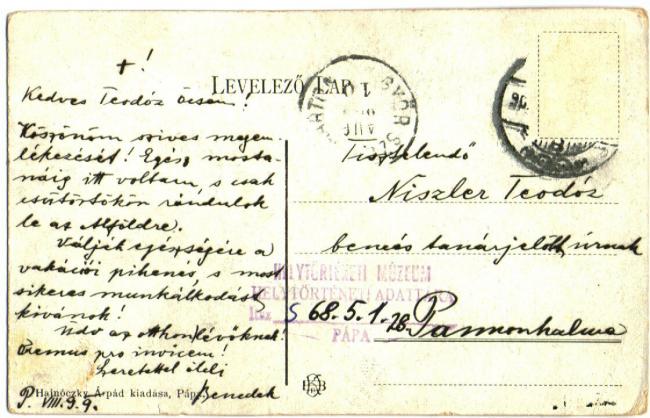 +!
LEVELEZŐ LAP
Kedves Teodóz öcsém!
Köszönöm szives megem-
lékezését! Egész mosta-
náig itt voltam, s csak
csütörtökön rándulok
le az Alföldre.
Váljék egészségére a
vakációi pihenés, s most
sikeres munkálkodást
kivánok!
Üdv az otthonlévőknek!
Oremus pro invicem!
Szeretettel öleli
Benedek
P. VIII. 9. 9.
Hajnóczky Árpád kiadása, Pápa
GYŐR SZ. MÁRTON
AUG
10
Tisztelendő
Niszler Teodóz
bencés tanárjelölt úrnak
Pannonhalma
HELYTÖRTÉNETI MÚZEUM
HELYTÖRTÉNETI ADATTÁRA
ltsz S 68.5.1.28
PÁPA